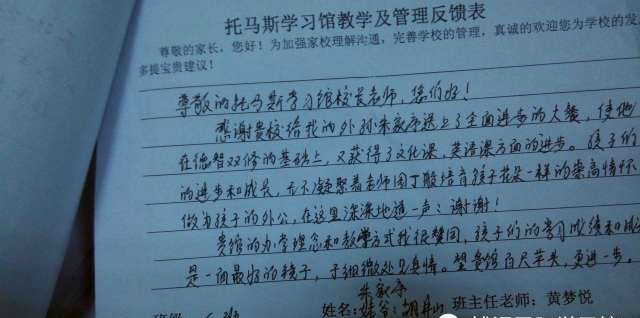 托马斯学习馆教学及管理反馈表
尊敬的家长，您好！为加强家校理解沟通，完善学校的管理，真诚的欢迎您为学校的发
多提宝贵建议！
尊敬的托马斯学习馆校长老师，您们好！
感谢贵校给我的外孙朱家序送上了全面进步的大餐，使他
在德智双修的基础上，又获得了文化课，英语课方面的进步。孩子的
的进步和成长，无不凝聚着老师园丁般培育孩子花朵一样的崇高情怀
做为孩子的外公，在这里深深地道一声：谢谢！
贵馆的办学理念和教学方式我很赞同，孩子们的学习成绩和
是一面最好的镜子，于细微处见真情。望贵馆百尺竿头，更进一步，
朱家序
姓名：姥爷：胡 班主任老师：黄梦悦